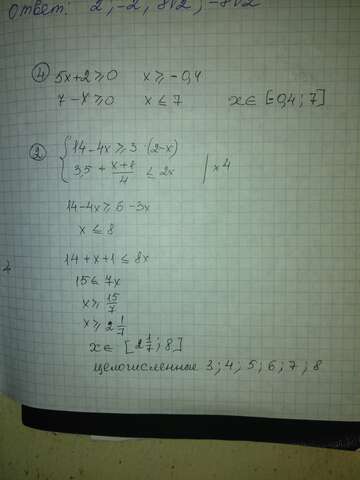 ответ: 2; -2; 8√2; -8√2
④ 5x+2⩾0 x⩾-0,4
7-x⩾0 x⩽7 x∈[-0,4;7]
② { 14-4x⩾3·(2-x)
3,5 + (x+1)/4 ⩽ 2x | ×4
14-4x⩾6-3x
x⩽8
14+x+1⩽8x
15⩽7x
x⩾ 15/7
x⩾ 2 1/7
x∈[2 1/7; 8]
целочисленные 3; 4; 5; 6; 7; 8